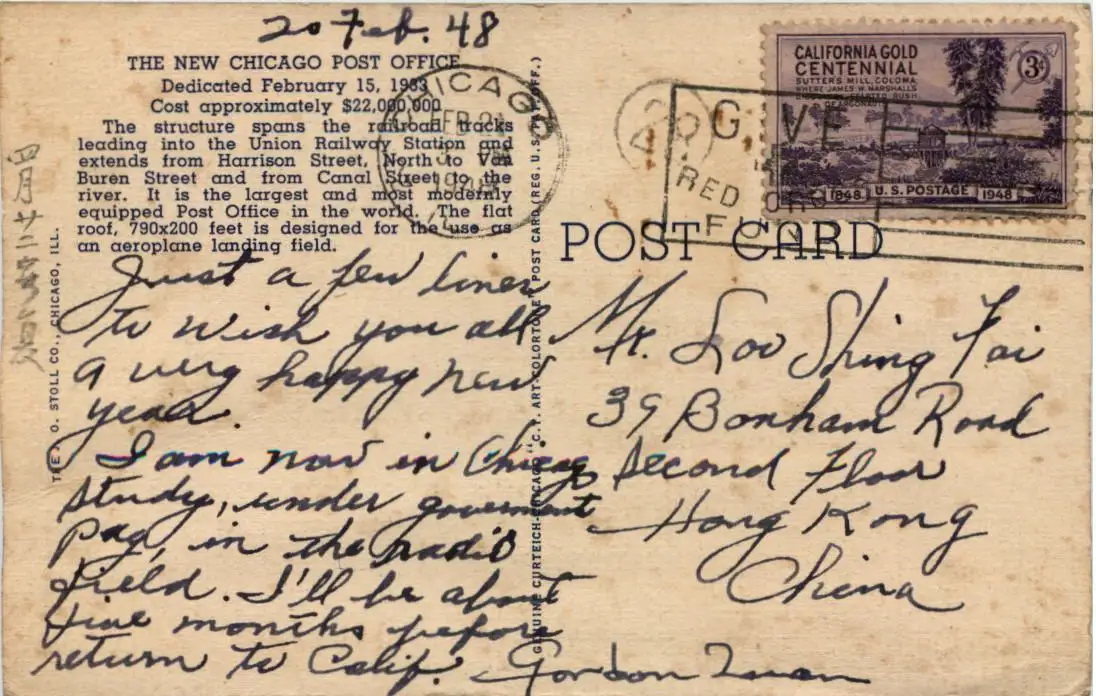 20 Feb. 48
THE NEW CHICAGO POST OFFICE
Dedicated February 15, 1933
Cost approximately $22,000,000
The structure spans the railroad tracks
leading into the Union Railway Station and
extends from Harrison Street, North to Van
Buren Street and from Canal Street to the
river. It is the largest and most modernly
equipped Post Office in the world. The flat
roof, 790x200 feet is designed for the use as
an aeroplane landing field.
Just a few lines
to wish you all
a very happy new
year.
I am now in Chicago
study, under goverment
pay, in the radio
field. I'll be about
five months before
return to Calif. Gordon Quan
CHICAGO
FEB 21
GIVE
RED
FUND
CALIFORNIA GOLD
CENTENNIAL
SUTTER'S MILL, COLOMA
WHERE JAMES W. MARSHALL'S
3¢
1848 U.S. POSTAGE 1948
POST CARD
Mr. Loo Shing Fai
39 Bonham Road
Second Floor
Hong Kong
China
CHICAGO, ILL.
GENUINE CURTEICH-CHICAGO "C.T. ART-COLORTONE" POST CARD (REG. U.S. PAT. OFF.)